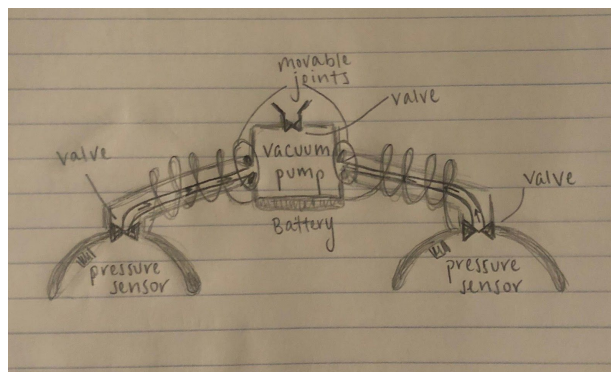 movable
joints
valve
valve
vacuum
pump
valve
Battery
pressure
sensor
pressure
sensor